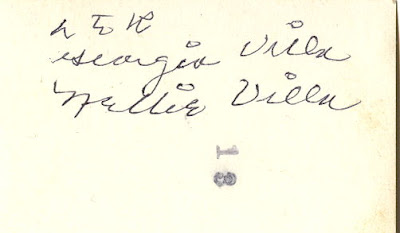 L E R
Georgia Villa
Nellie Villa
18